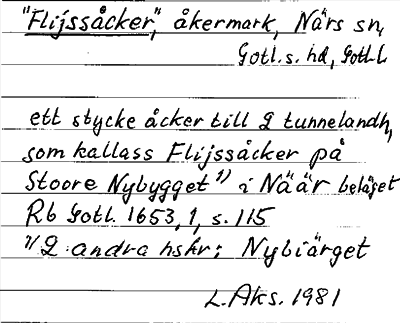 "Flijssåcker", åkermark, Närs sn,
Gotl. s. hd, Gotl. l.
ett stycke åcker till 2 tunnelandh,
som kallass Flijssåcker på
Stoore Nybygget 1) i Näär beläget
Rb Gotl. 1653, 1, s. 115
1) 2 andra hskr: Nybiärget
L. Aks. 1981